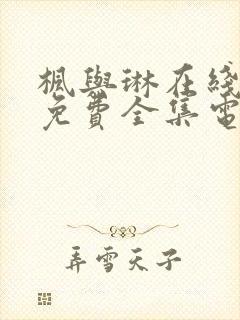 楓與琳在綫
免費全集電
弄雪天子